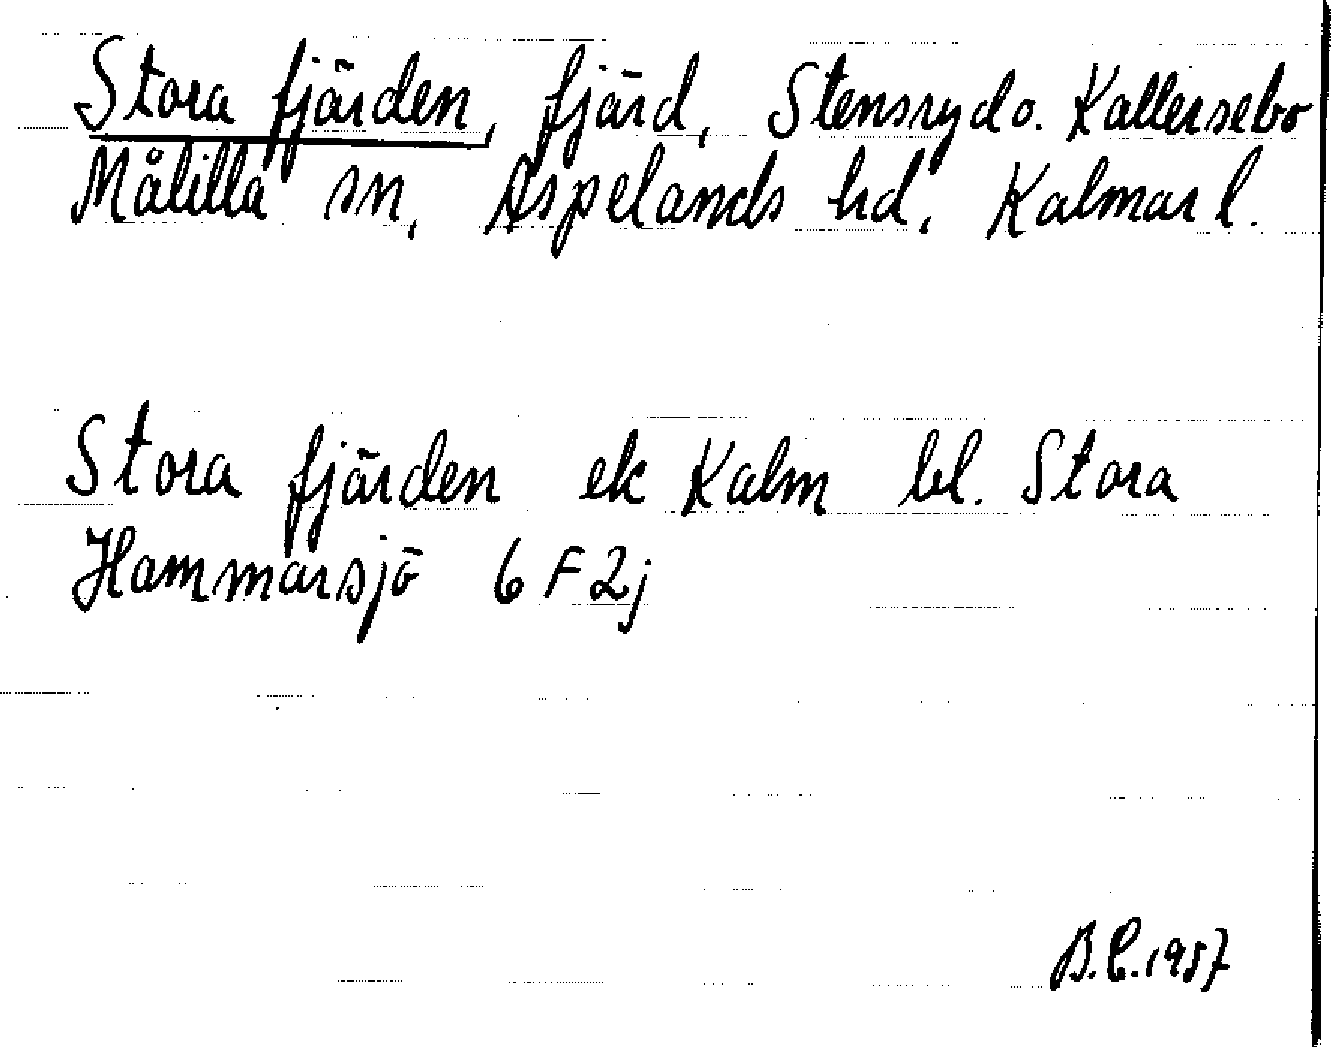 Stora fjärden, fjärd, Stensryd o. Kallersebo
Målilla sn, Aspelands hd, Kalmar l.
Stora fjärden ek Kalm bl. Stora
Hammarsjö 6 F 2j
B.C. 1957